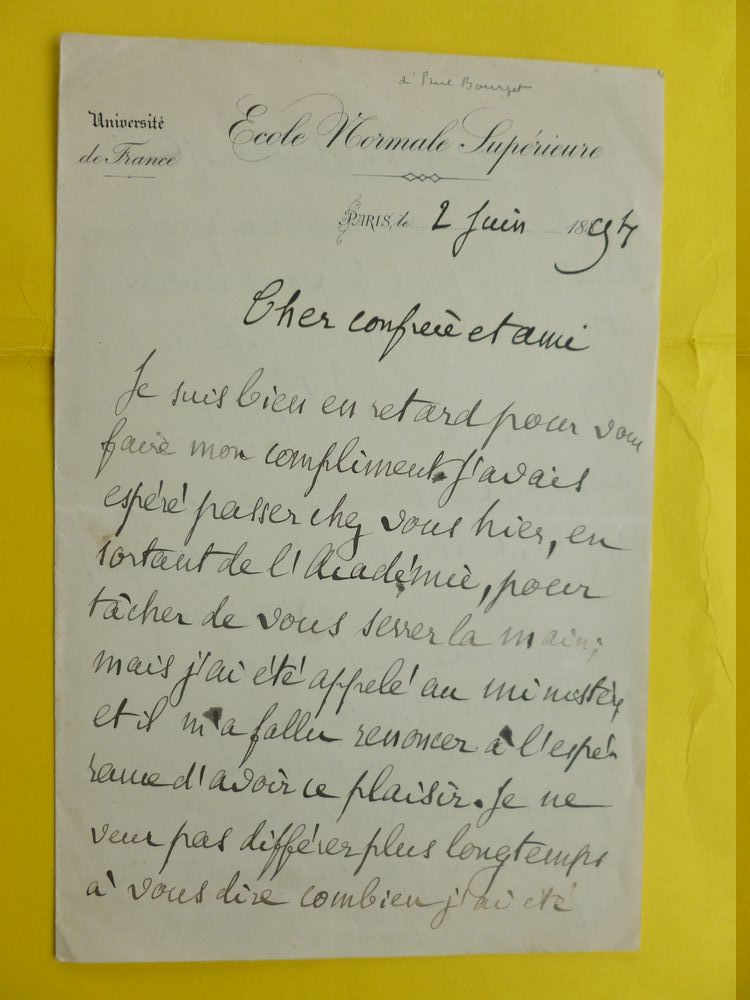 d' Paul Bourget
Université
de France
Ecole Normale Supérieure
PARIS, le 2 Juin 1894
Cher confrère et ami
Je suis bien en retard pour vous
faire mon compliment. J'avais
espéré passer chez vous hier, en
sortant de l'Académie, pour
tâcher de vous serrer la main;
mais j'ai été appelé au ministère
et il m'a fallu renoncer à l'espé-
rance d'avoir ce plaisir. Je ne
veux pas différer plus longtemps
à vous dire combien j'ai été